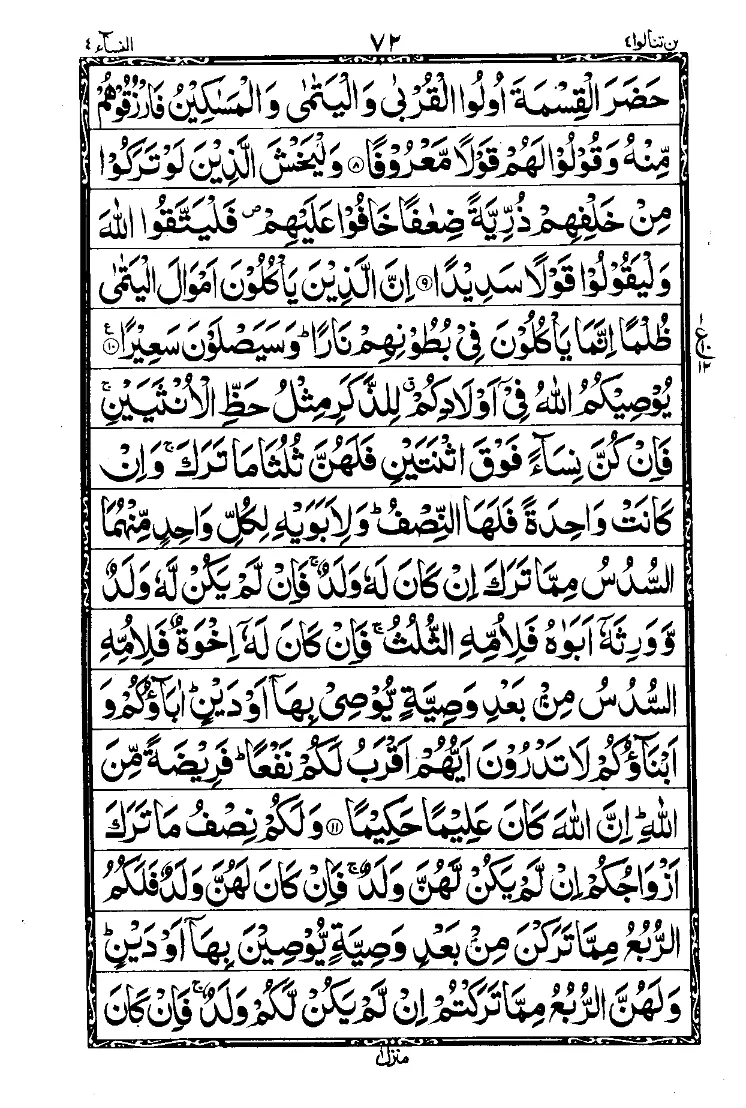 لن تنالوا ٤ ٧٢ النسآء ٤
حَضَرَ الْقِسْمَةَ اُولُوا الْقُرْبٰى وَالْيَتٰمٰى وَالْمَسٰكِيْنُ فَارْزُقُوْهُمْ
مِّنْهُ وَقُوْلُوْا لَهُمْ قَوْلًا مَّعْرُوْفًا ۸ وَلْيَخْشَ الَّذِيْنَ لَوْ تَرَكُوْا
مِنْ خَلْفِهِمْ ذُرِّيَّةً ضِعٰفًا خَافُوْا عَلَيْهِمْ ۪ فَلْيَتَّقُوا اللّٰهَ
وَلْيَقُوْلُوْا قَوْلًا سَدِيْدًا ۹ اِنَّ الَّذِيْنَ يَاْكُلُوْنَ اَمْوَالَ الْيَتٰمٰى
ظُلْمًا اِنَّمَا يَاْكُلُوْنَ فِيْ بُطُوْنِهِمْ نَارًا ؕ وَسَيَصْلَوْنَ سَعِيْرًا ۱۰ ع
١
ع ١٠
١٢
يُوْصِيْكُمُ اللّٰهُ فِيْۤ اَوْلَادِكُمْ ۗ لِلذَّكَرِ مِثْلُ حَظِّ الْاُنْثَيَيْنِ ۚ
فَاِنْ كُنَّ نِسَآءً فَوْقَ اثْنَتَيْنِ فَلَهُنَّ ثُلُثَا مَا تَرَكَ ۚ وَاِنْ
كَانَتْ وَاحِدَةً فَلَهَا النِّصْفُ ؕ وَلِاَبَوَيْهِ لِكُلِّ وَاحِدٍ مِّنْهُمَا
السُّدُسُ مِمَّا تَرَكَ اِنْ كَانَ لَهٗ وَلَدٌ ۚ فَاِنْ لَّمْ يَكُنْ لَّهٗ وَلَدٌ
وَّوَرِثَهٗۤ اَبَوٰهُ فَلِاُمِّهِ الثُّلُثُ ۚ فَاِنْ كَانَ لَهٗۤ اِخْوَةٌ فَلِاُمِّهِ
السُّدُسُ مِنْۢ بَعْدِ وَصِيَّةٍ يُّوْصِيْ بِهَاۤ اَوْ دَيْنٍ ؕ اٰبَآؤُكُمْ وَ
اَبْنَآؤُكُمْ لَا تَدْرُوْنَ اَيُّهُمْ اَقْرَبُ لَكُمْ نَفْعًا ؕ فَرِيْضَةً مِّنَ
اللّٰهِ ؕ اِنَّ اللّٰهَ كَانَ عَلِيْمًا حَكِيْمًا ۱۱ وَلَكُمْ نِصْفُ مَا تَرَكَ
اَزْوَاجُكُمْ اِنْ لَّمْ يَكُنْ لَّهُنَّ وَلَدٌ ۚ فَاِنْ كَانَ لَهُنَّ وَلَدٌ فَلَكُمُ
الرُّبُعُ مِمَّا تَرَكْنَ مِنْۢ بَعْدِ وَصِيَّةٍ يُّوْصِيْنَ بِهَاۤ اَوْ دَيْنٍ ؕ
وَلَهُنَّ الرُّبُعُ مِمَّا تَرَكْتُمْ اِنْ لَّمْ يَكُنْ لَّكُمْ وَلَدٌ ۚ فَاِنْ كَانَ
منزل ١